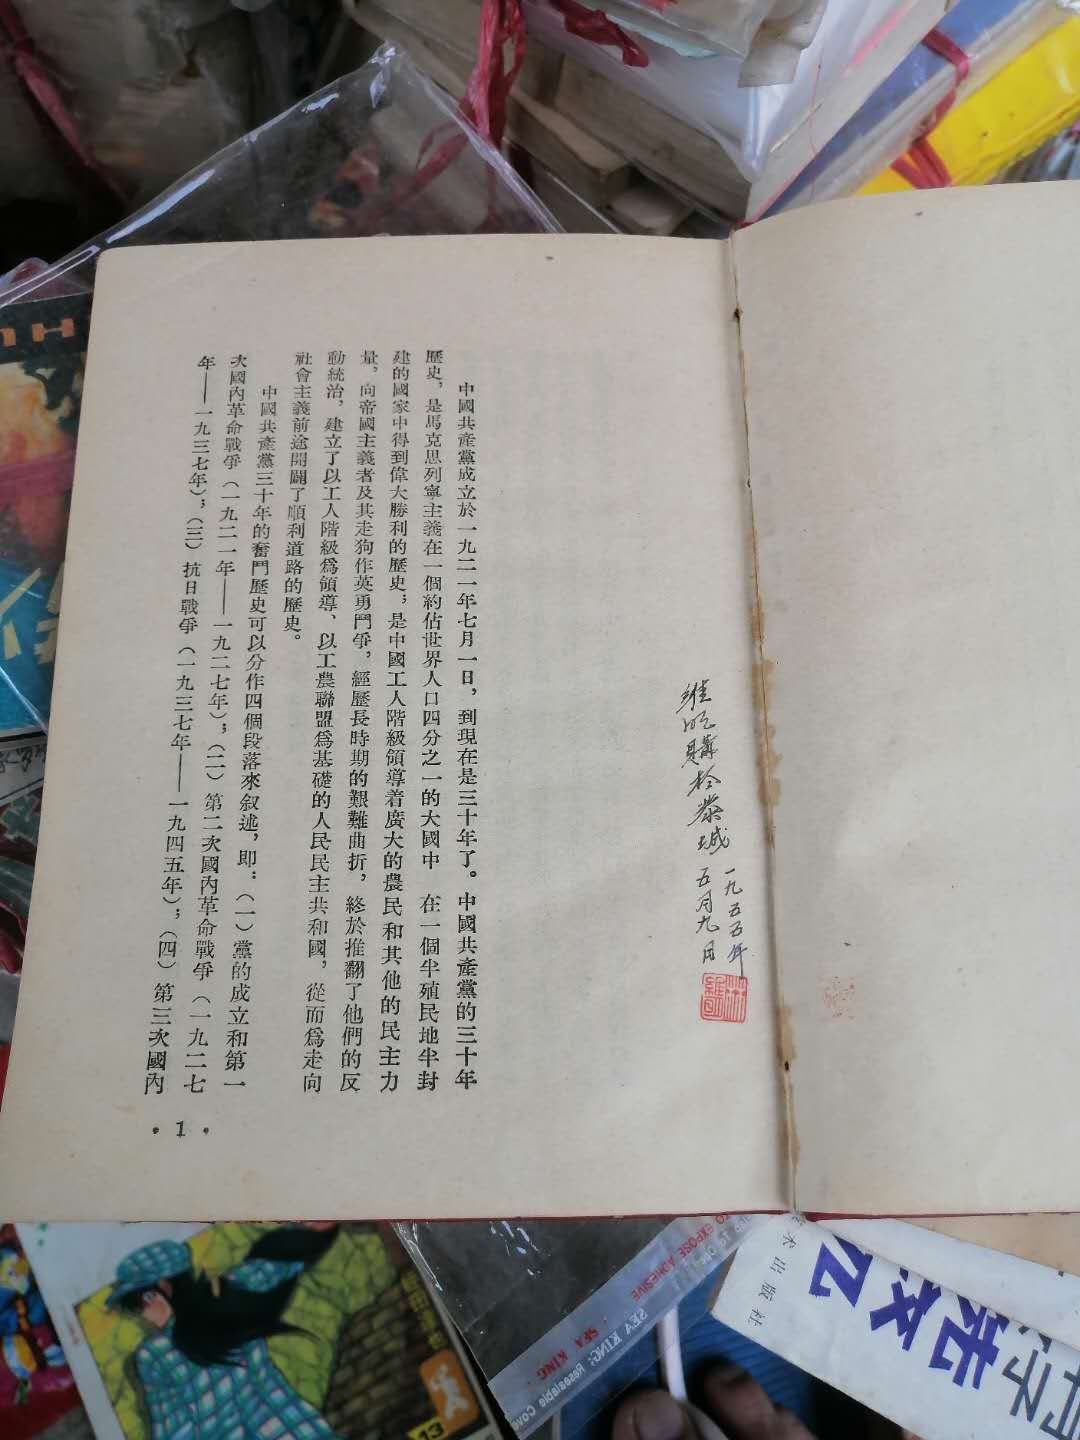 中國共產黨成立於一九二一年七月一日，到現在是三十年了。中國共產黨的三十年
歷史，是馬克思列寧主義在一個約佔世界人口四分之一的大國中　在一個半殖民地半封
建的國家中得到偉大勝利的歷史；是中國工人階級領導着廣大的農民和其他的民主力
量，向帝國主義者及其走狗作英勇鬥爭，經歷長時期的艱難曲折，終於推翻了他們的反
動統治，建立了以工人階級爲領導、以工農聯盟爲基礎的人民民主共和國，從而爲走向
社會主義前途開闢了順利道路的歷史。
中國共產黨三十年的奮鬥歷史可以分作四個段落來叙述，即：（一）黨的成立和第一
次國內革命戰爭（一九二一年——一九二七年）；（二）第二次國內革命戰爭（一九二七
年——一九三七年）；（三）抗日戰爭（一九三七年——一九四五年）；（四）第三次國內
· 1 ·
購於恭城
一九五五年
五月九日
術出版社
TO EXPOSE ADHESIVE
SEA KING
SEA KING: Resealable
13